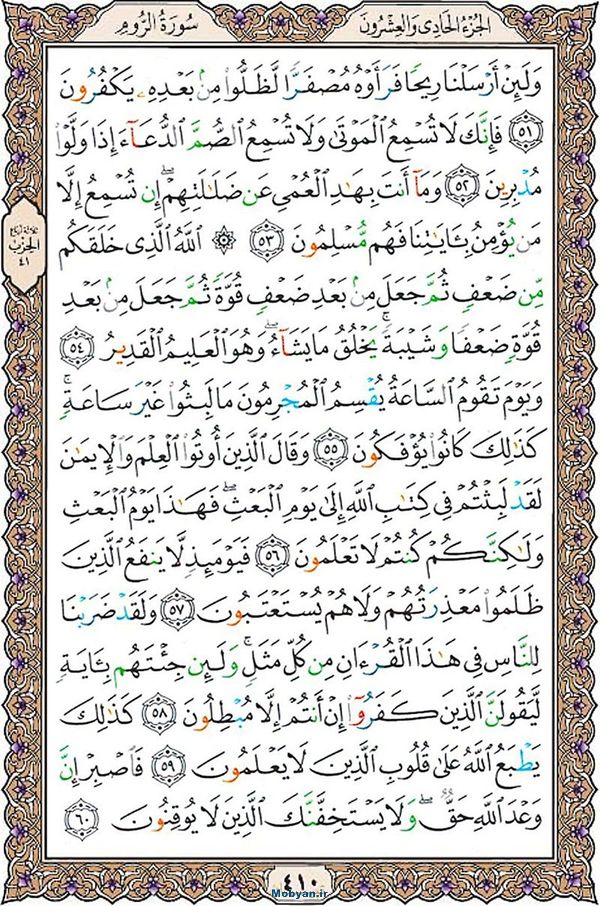 الجُزْءُ الحَادِى وَالعِشْرُونَ
سُورَةُ الرُّومِ
وَلَئِنْ أَرْسَلْنَا رِيحًا فَرَأَوْهُ مُصْفَرًّا لَّظَلُّوا۟ مِنۢ بَعْدِهِۦ يَكْفُرُونَ
﴿٥١﴾ فَإِنَّكَ لَا تُسْمِعُ ٱلْمَوْتَىٰ وَلَا تُسْمِعُ ٱلصُّمَّ ٱلدُّعَآءَ إِذَا وَلَّوْا۟
مُدْبِرِينَ ﴿٥٢﴾ وَمَآ أَنتَ بِهَـٰدِ ٱلْعُمْىِ عَن ضَلَـٰلَتِهِمْ ۖ إِن تُسْمِعُ إِلَّا
مَن يُؤْمِنُ بِـَٔايَـٰتِنَا فَهُم مُّسْلِمُونَ ﴿٥٣﴾ ۞ ٱللَّهُ ٱلَّذِى خَلَقَكُم
مِّن ضَعْفٍ ثُمَّ جَعَلَ مِنۢ بَعْدِ ضَعْفٍ قُوَّةً ثُمَّ جَعَلَ مِنۢ بَعْدِ
قُوَّةٍ ضَعْفًا وَشَيْبَةً ۚ يَخْلُقُ مَا يَشَآءُ ۖ وَهُوَ ٱلْعَلِيمُ ٱلْقَدِيرُ ﴿٥٤﴾
وَيَوْمَ تَقُومُ ٱلسَّاعَةُ يُقْسِمُ ٱلْمُجْرِمُونَ مَا لَبِثُوا۟ غَيْرَ سَاعَةٍ ۚ
كَذَٰلِكَ كَانُوا۟ يُؤْفَكُونَ ﴿٥٥﴾ وَقَالَ ٱلَّذِينَ أُوتُوا۟ ٱلْعِلْمَ وَٱلْإِيمَـٰنَ
لَقَدْ لَبِثْتُمْ فِى كِتَـٰبِ ٱللَّهِ إِلَىٰ يَوْمِ ٱلْبَعْثِ ۖ فَهَـٰذَا يَوْمُ ٱلْبَعْثِ
وَلَـٰكِنَّكُمْ كُنتُمْ لَا تَعْلَمُونَ ﴿٥٦﴾ فَيَوْمَئِذٍ لَّا يَنفَعُ ٱلَّذِينَ
ظَلَمُوا۟ مَعْذِرَتُهُمْ وَلَا هُمْ يُسْتَعْتَبُونَ ﴿٥٧﴾ وَلَقَدْ ضَرَبْنَا
لِلنَّاسِ فِى هَـٰذَا ٱلْقُرْءَانِ مِن كُلِّ مَثَلٍ ۚ وَلَئِن جِئْتَهُم بِـَٔايَةٍ
لَّيَقُولَنَّ ٱلَّذِينَ كَفَرُوٓا۟ إِنْ أَنتُمْ إِلَّا مُبْطِلُونَ ﴿٥٨﴾ كَذَٰلِكَ
يَطْبَعُ ٱللَّهُ عَلَىٰ قُلُوبِ ٱلَّذِينَ لَا يَعْلَمُونَ ﴿٥٩﴾ فَٱصْبِرْ إِنَّ
وَعْدَ ٱللَّهِ حَقٌّ ۖ وَلَا يَسْتَخِفَّنَّكَ ٱلَّذِينَ لَا يُوقِنُونَ ﴿٦٠﴾
الحِزْبُ
٤١
٤١٠
Mobyan.ir